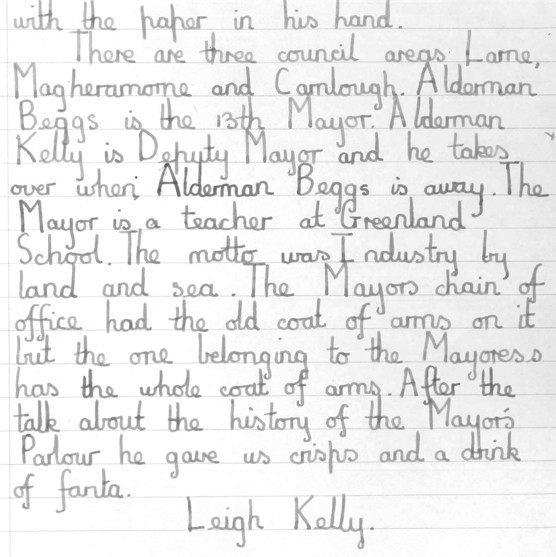 with the paper in his hand.
There are three council areas Larne,
Magheramorne and Carnlough. Alderman
Beggs is the 13th Mayor. Alderman
Kelly is Deputy Mayor and he takes
over when Alderman Beggs is away. The
Mayor is a teacher at Greenland
School. The motto was Industry by
land and sea. The Mayors chain of
office had the old coat of arms on it
but the one belonging to the Mayoress
has the whole coat of arms. After the
talk about the history of the Mayor's
Parlour he gave us crisps and a drink
of fanta.
Leigh Kelly.